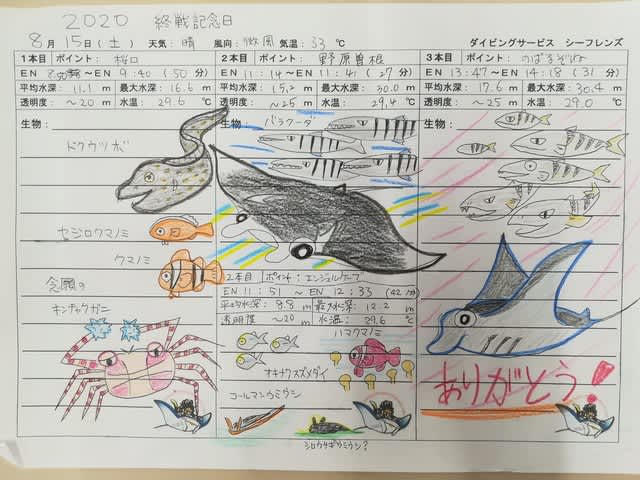 2020 終戦記念日
8月15日(土) 天気:晴 風向:微風 気温:33℃ ダイビングサービス シーフレンズ
1本目 ポイント:桜口
EN ~EN 9:40 (50分)
平均水深:11.1 m 最大水深:16.6 m
透明度:~20 m 水温:29.6 ℃
生物:
ドクウツボ
セジロクマノミ
クマノミ
念願の
キンチャクガニ
2本目 ポイント:野原曽根
EN 11:14~EN 11:41 (27分)
平均水深:15.2 m 最大水深:30.0 m
透明度:~25 m 水温:29.4 ℃
生物:バラクーダ
2本目 ポイント:エンジェルケーブ
EN 11:51 ~EN 12:33 (42分)
平均水深:8.8 m 最大水深:12.2 m
透明度 ~20m 水温:29.6℃
ハマクマノミ
オキナワスズメダイ
コールマンウミウシ
シロウサギウミウシ?
3本目 ポイント:のばるぞね
EN 13:47~EN 14:18 (31分)
平均水深:17.6 m 最大水深:30.4 m
透明度:~25 m 水温:29.0 ℃
生物:
ありがとう!